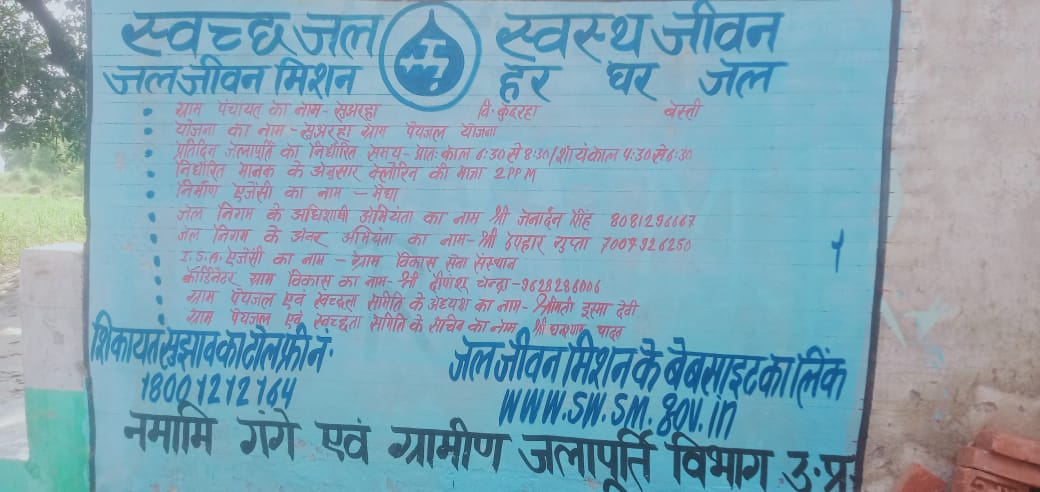 स्वच्छ जल स्वस्थ जीवन
जल जीवन मिशन हर घर जल
ग्राम पंचायत का नाम - सुअरहा वि. कुदरहा बस्ती
योजना का नाम - सुअरहा ग्राम पेयजल योजना
प्रतिदिन जलापूर्ति का निर्धारित समय - प्रातः काल 6:30 से 8:30/शायंकाल 4:30 से 6:30
निर्धारित मानक के अनुसार क्लोरिन की मात्रा 2 PPM
निर्माण एजेंसी का नाम - मेघा
जल निगम के अधिशाषी अभियंता का नाम श्री जनार्दन सिंह 8081296667
जल निगम के अवर अभियंता का नाम - श्री उपहार गुप्ता 7007926250
I.S.A. ऐजेंसी का नाम - ग्राम विकास सेवा संस्थान
कॉर्डिनेटर ग्राम विकास का नाम - श्री दीपांशू चन्द्रा - 9628286006
ग्राम पेयजल एवं स्वच्छता समिति के अध्यक्ष का नाम - श्रीमती इस्मा देवी
ग्राम पेयजल एवं स्वच्छता समिति के सचिव का नाम श्री यादव
शिकायत सुझाव का टोल फ्री नं.
18001212164
जल जीवन मिशन के बेबसाइट का लिंक
WWW.SW.SM.gov.in
नमामि गंगे एवं ग्रामीण जलापूर्ति विभाग उ.प्र.